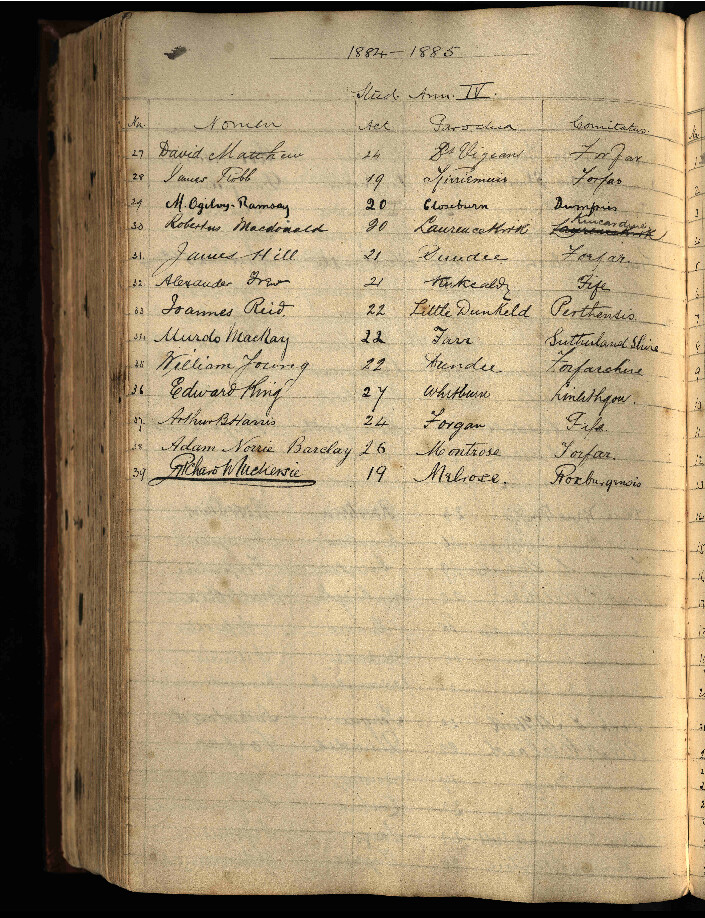 1884-1885
Stud. Ann. IV.
No. Nomen Aet Parochia Comitatus
27 David Matthew 24 St Vigeans Forfar
28 James Robb 19 Kirriemuir Forfar
29 M. Ogilvy-Ramsay 20 Closeburn Dumfries
30 Robertus Macdonald 20 Laurencekirk Laurencekirk Kincardine
31 James Hill 21 Dundee Forfar.
32 Alexander Frew 21 Kirkcaldy Fife
33 Joannes Reid. 22 Little Dunkeld Perthensis
34 Murdo MacKay 22 Farr Sutherland Shire
35 William Young 22 Dundee Forfarshire
36 Edward King 27 Whitburn Linlithgow.
37 Arthur B Harris 24 Forgan Fife
38 Adam Norrie Barclay 26 Montrose Forfar.
39 Richard W McKersie 19 Melrose. Roxburgensis